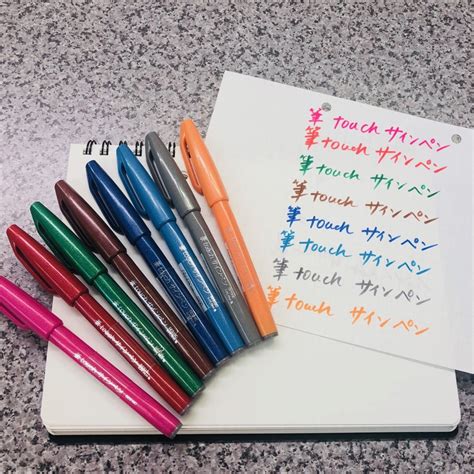 筆touchサインペン
筆touchサインペン
筆touchサインペン
筆touchサインペン
筆touchサインペン
筆touchサインペン
筆touchサインペン
筆touchサインペン